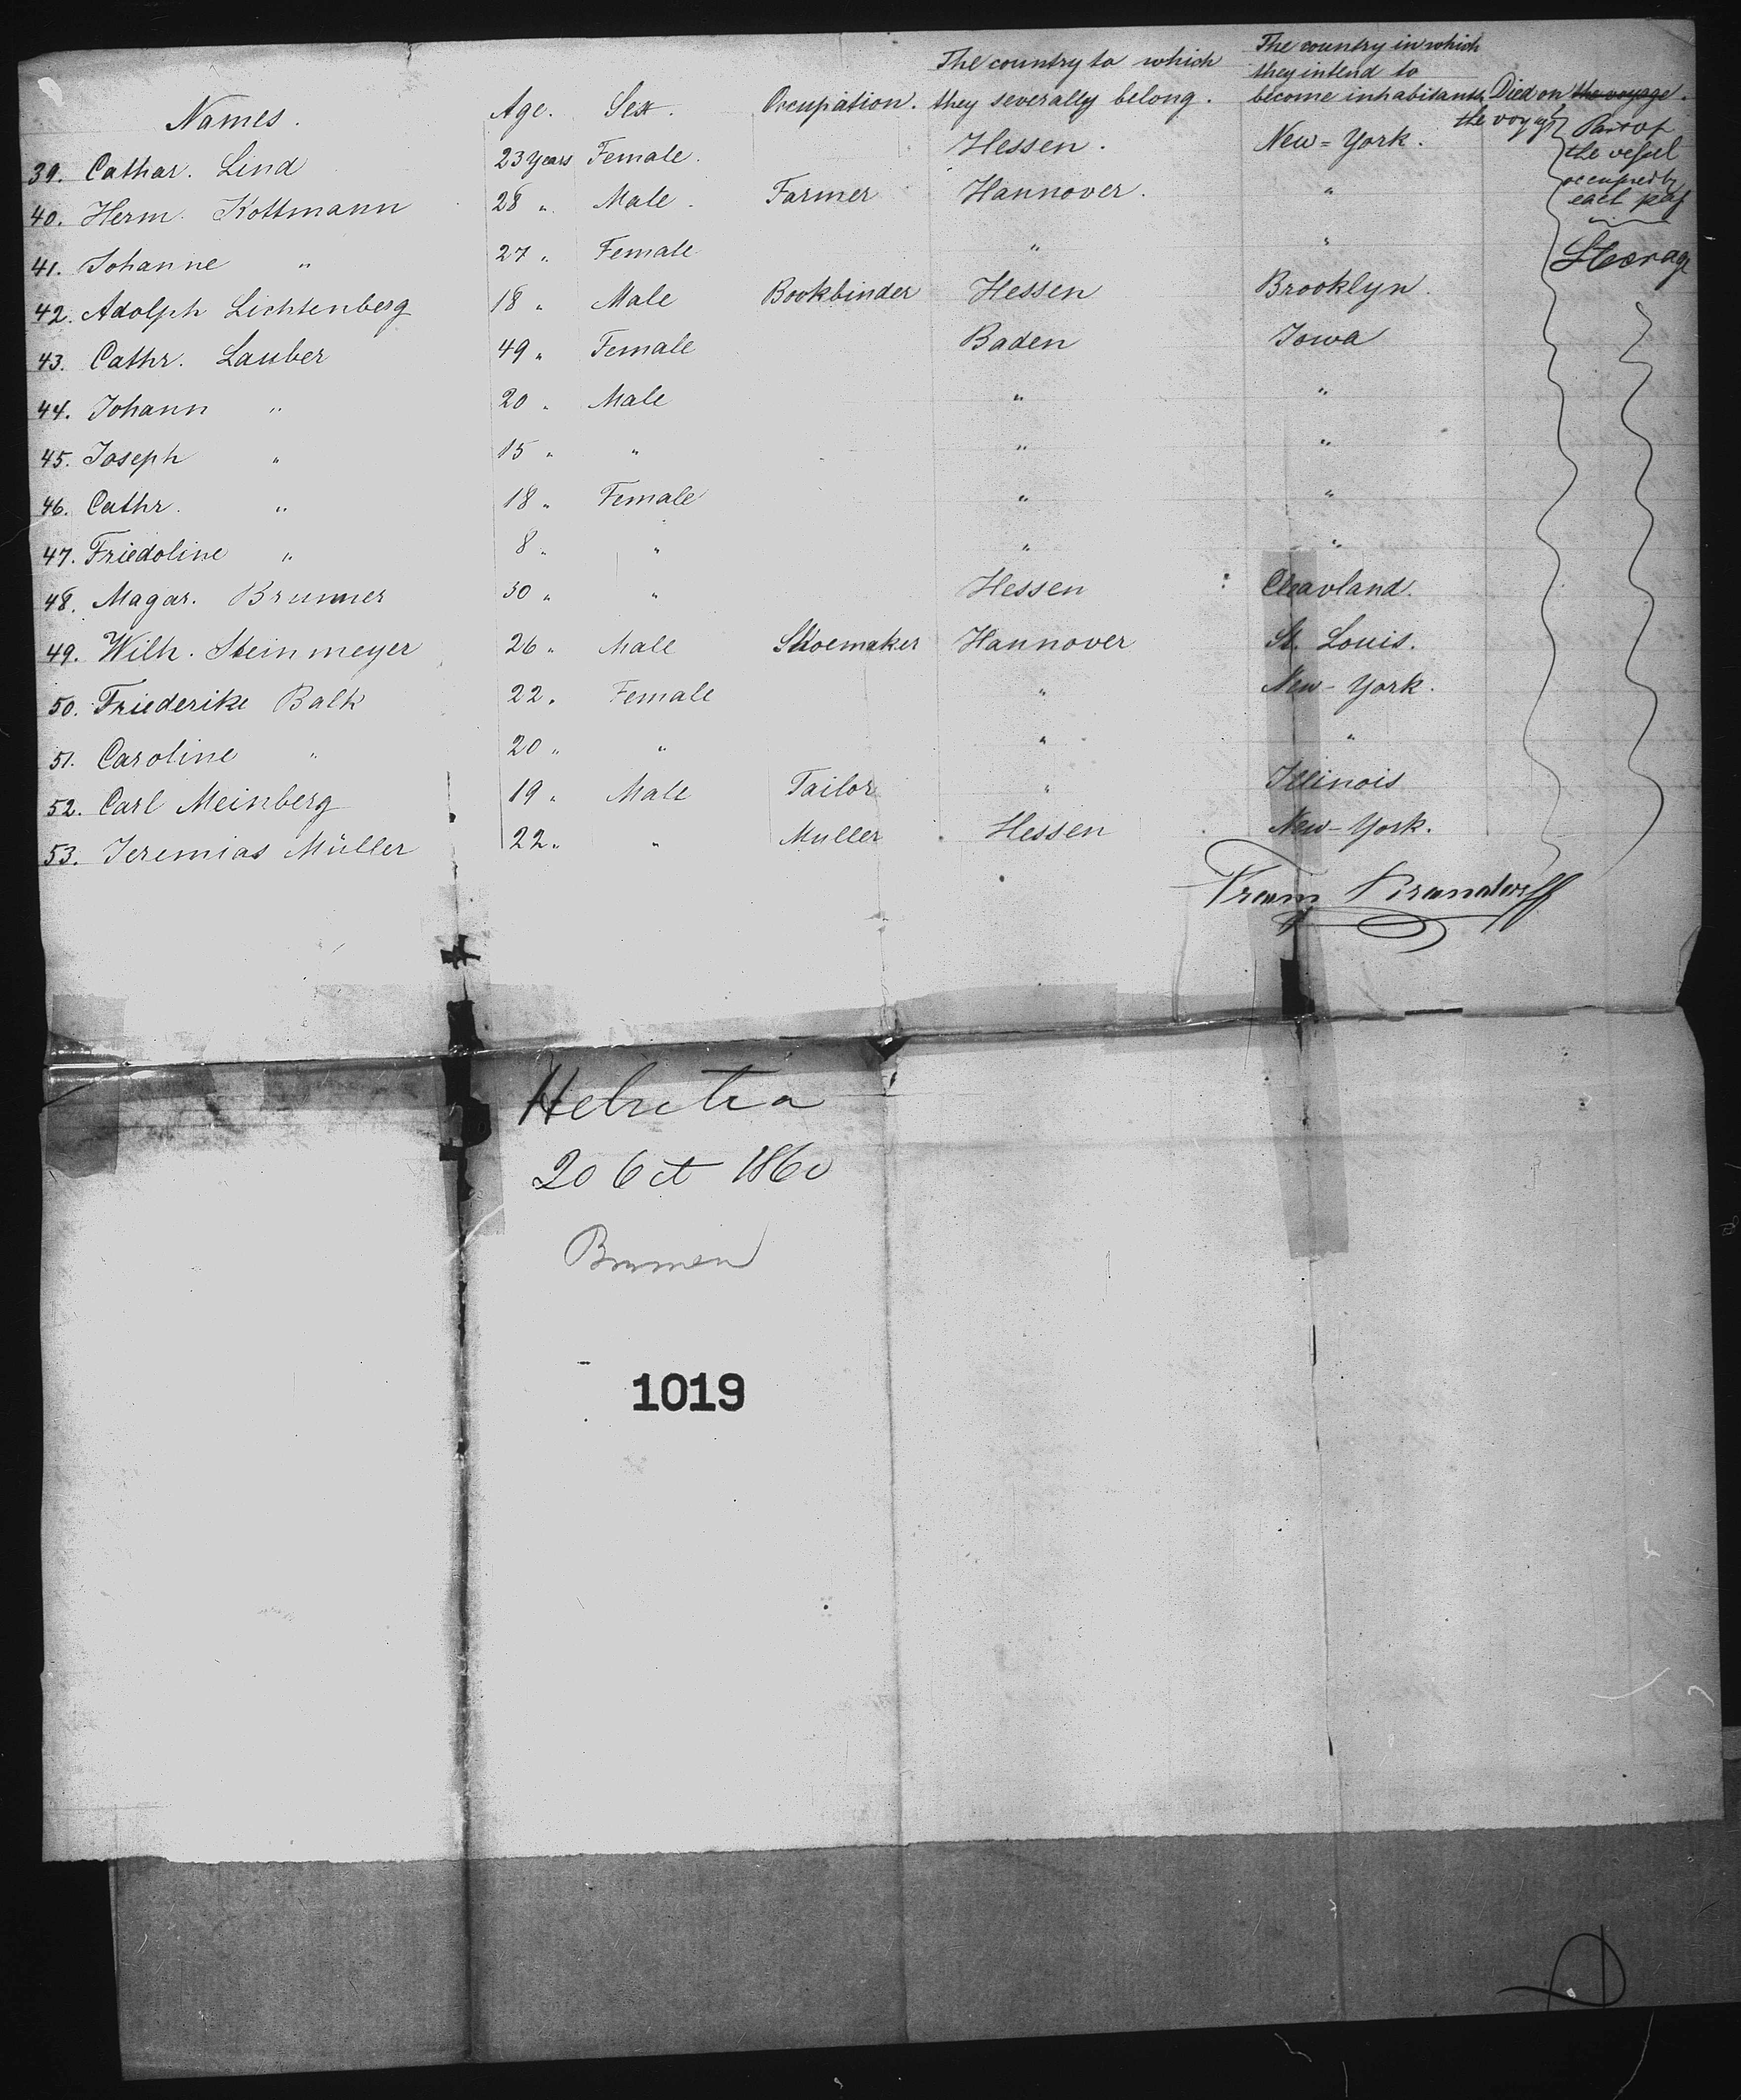 The country to which The country in which
they intend to
Names. Age. Sex. Occupiation. they severally belong. become inhabitants. Died on the voyage.
the voyage
Part of
the vessel
occupied by
each pass
Steerage
39. Cathar. Lind 23 years Female. Hessen. New=York.
40. Herm. Kottmann 28 " Male. Farmer Hannover. "
41. Johanne " 27 " Female " "
42. Adolph Lichtenberg 18 " Male Bookbinder Hessen Brooklyn.
43. Cathr. Lauber 49 " Female Baden Iowa
44. Johann " 20 " Male " "
45. Joseph " 15 " " " "
46. Cathr. " 18 " Female " "
47. Friedoline " 8 " " " "
48. Magar. Brunner 50 " " Hessen Cleavland.
49. Wilh. Steinmeyer 26 " Male Shoemaker Hannover St. Louis.
50. Friederike Balk 22 " Female " New-York.
51. Caroline " 20 " " " "
52. Carl Meinberg 19 " Male Tailor " Illinois
53. Jeremias Müller 22 " " Muller Hessen New-York.
Helvetia
20 Oct 1860
Bremen
1019